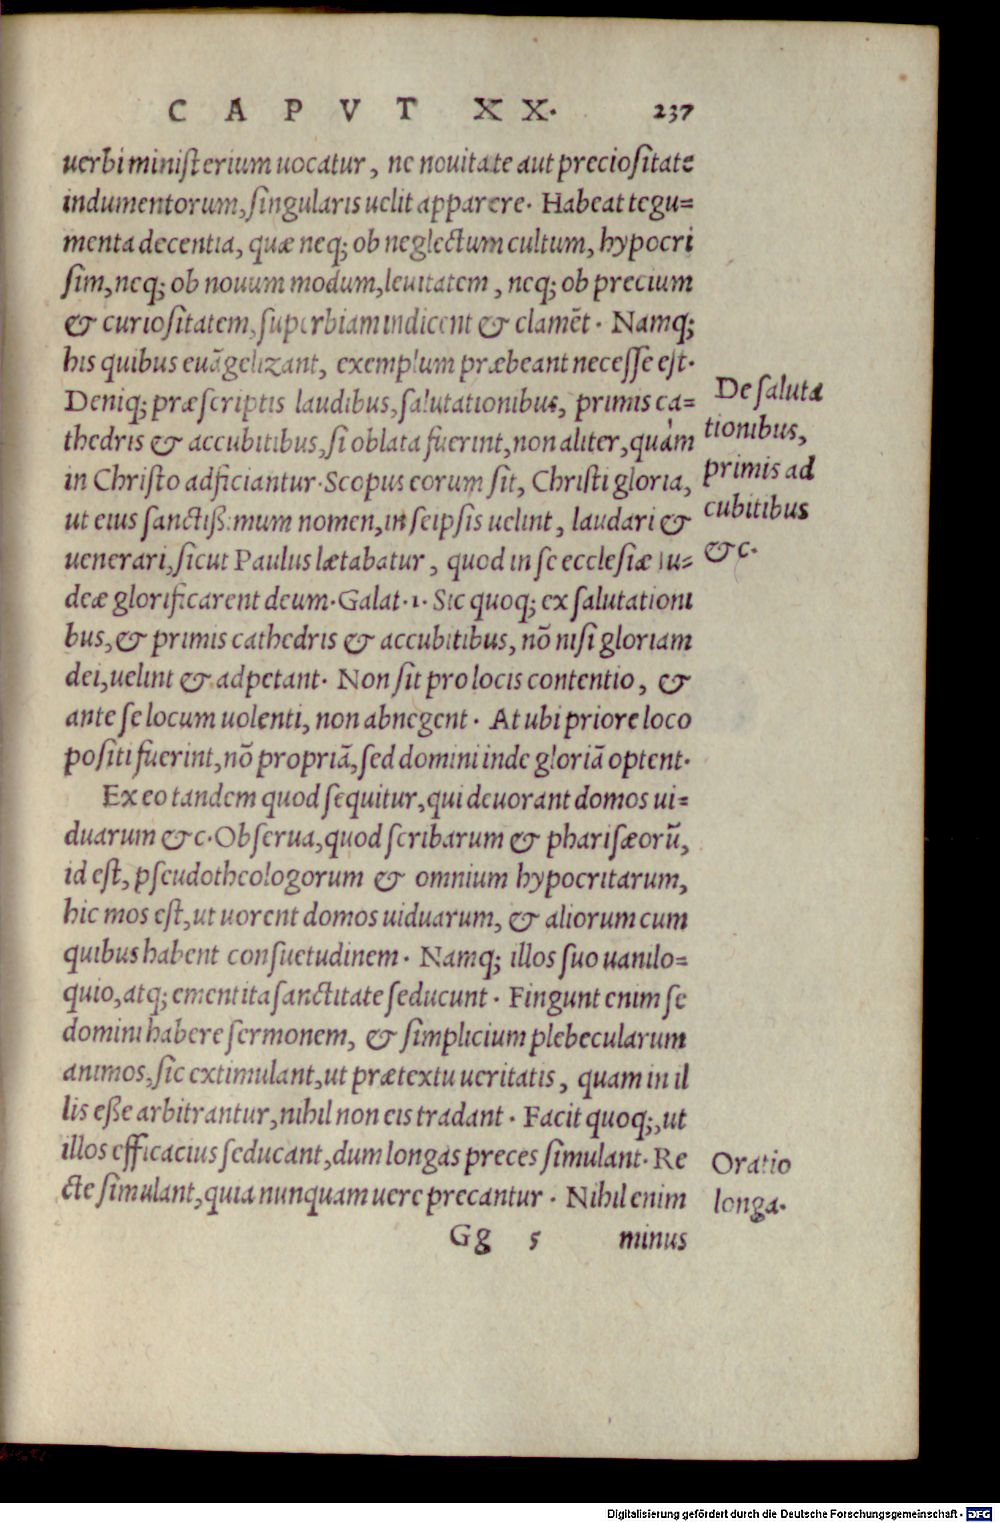 CAPVT XX. 237
uerbi ministerium uocatur, ne nouitate aut preciositate
indumentorum, singularis uelit apparere. Habeat tegu=
menta decentia, quæ neq; ob neglectum cultum, hypocri
sim, neq; ob nouum modum, leuitatem, neq; ob precium
& curiositatem, superbiam indicent & clamēt. Namq;
his quibus euāgelizant, exemplum præbeant necesse est.
Deniq; præscriptis laudibus, salutationibus, primis ca=
thedris & accubitibus, si oblata fuerint, non aliter, quàm
in Christo adficiantur. Scopus eorum sit, Christi gloria,
ut eius sanctiß:mum nomen, in seipsis uelint, laudari &
uenerari, sicut Paulus lætabatur, quod in se ecclesiæ Iu=
deæ glorificarent deum. Galat. 1. Sic quoq; ex salutationi
bus, & primis cathedris & accubitibus, nō nisi gloriam
dei, uelint & adpetant. Non sit pro locis contentio, &
ante se locum uolenti, non abnegent. At ubi priore loco
positi fuerint, nō propriā, sed domini inde gloriā optent.
Ex eo tandem quod sequitur, qui deuorant domos ui=
duarum &c. Obserua, quod scribarum & pharisæorū,
id est, pseudotheologorum & omnium hypocritarum,
hic mos est, ut uorent domos uiduarum, & aliorum cum
quibus habent consuetudinem. Namq; illos suo uanilo=
quio, atq; ementita sanctitate seducunt. Fingunt enim se
domini habere sermonem, & simplicium plebecularum
animos, sic extimulant, ut prætextu ueritatis, quam in il
lis eße arbitrantur, nihil non eis tradant. Facit quoq;, ut
illos efficacius seducant, dum longas preces simulant. Re
cte simulant, quia nunquam uere precantur. Nihil enim
Gg 5 minus
De saluta
tionibus,
primis ad
cubitibus
&c.
Oratio
longa.
Digitalisierung gefördert durch die Deutsche Forschungsgemeinschaft - DFG